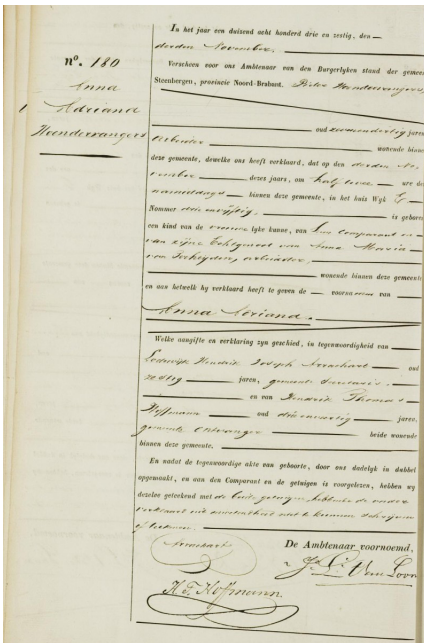 n°. 180
Anna
Adriana
Hoendervangers
In het jaar een duizend acht honderd drie en zestig, den
derden November,
Verscheen voor ons Ambtenaar van den Burgerlyken stand der gemeente
Steenbergen, provincie Noord-Brabant. Pieter Hoendervangers,
oud zevenendertig jaren
arbeider wonende binnen
deze gemeente, dewelke ons heeft verklaard, dat op den derden No-
vember dezes jaars, om half twee ure des
namiddags binnen deze gemeente, in het huis Wyk E
Nommer drieenvyftig, is geboren
een kind van de vrouwelyke kunne, van hem comparant en
van zijne Echtgenoot van Anna Maria
van arbeidster,
wonende binnen deze gemeente
en aan hetwelk hy verklaard heeft te geven de voornamen van
Anna Adriana.
Welke aangifte en verklaring zyn geschied, in tegenwoordigheid van
Lodewijk Hendrik Joseph oud
zestig jaren, gemeente secretaris
en van Hendrik Thomas
Hoffmann oud drieenveertig jaren,
gemeente ontvanger beide wonende
binnen deze gemeente.
En nadat de tegenwoordige akte van geboorte, door ons dadelyk in dubbel
opgemaakt, en aan den Comparant en de getuigen is voorgelezen, hebben wy
dezelve geteekend met de beide getuigen, hebbende de vader
verklaard uit onwetendheid niet te kunnen schrijven
of teekenen.
De Ambtenaar voornoemd,
Van Loon
H. T. Hoffmann.